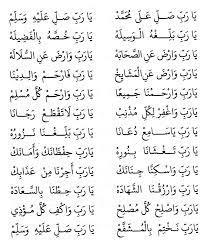 يَا رَبِّ صَلِّ عَلَى مُحَمَّدْ يَا رَبِّ صَلِّ عَلَيْهِ وَسَلِّمْ
يَا رَبِّ بَلِّغْهُ الْوَسِيلَةْ يَا رَبِّ خُصَّهُ بِالْفَضِيلَةْ
يَا رَبِّ وَارْضَ عَنِ الصَّحَابَةْ يَا رَبِّ وَارْضَ عَنِ السُّلَالَةْ
يَا رَبِّ وَارْضَ عَنِ الْمَشَايِخْ يَا رَبِّ فَارْحَمْ وَالِدِيْنَا
يَا رَبِّ وَارْحَمْنَا جَمِيعًا يَا رَبِّ وَارْحَمْ كُلَّ مُسْلِمْ
يَا رَبِّ وَاغْفِرْ لِكُلِّ مُذْنِبْ يَا رَبِّ لَا تَقْطَعْ رَجَانَا
يَا رَبِّ يَا سَامِعْ دُعَانَا يَا رَبِّ بَلِّغْنَا نَزُورُهْ
يَا رَبِّ تَغْشَانَا بِنُورِهْ يَا رَبِّ حِفْظَانَكْ وَأَمَانَكْ
يَا رَبِّ وَاسْكِنَّا جِنَانَكْ يَا رَبِّ أَجِرْنَا مِنْ عَذَابِكْ
يَا رَبِّ وَارْزُقْنَا الشَّهَادَةْ يَا رَبِّ حِطْنَا بِالسَّعَادَةْ
يَا رَبِّ وَاصْلِحْ كُلَّ مُصْلِحْ يَا رَبِّ وَاكْفِ كُلَّ مُؤْذِي
يَا رَبِّ نَخْتِمْ بِالْمُشَفَّعْ يَا رَبِّ صَلِّ عَلَيْهِ وَسَلِّمْ